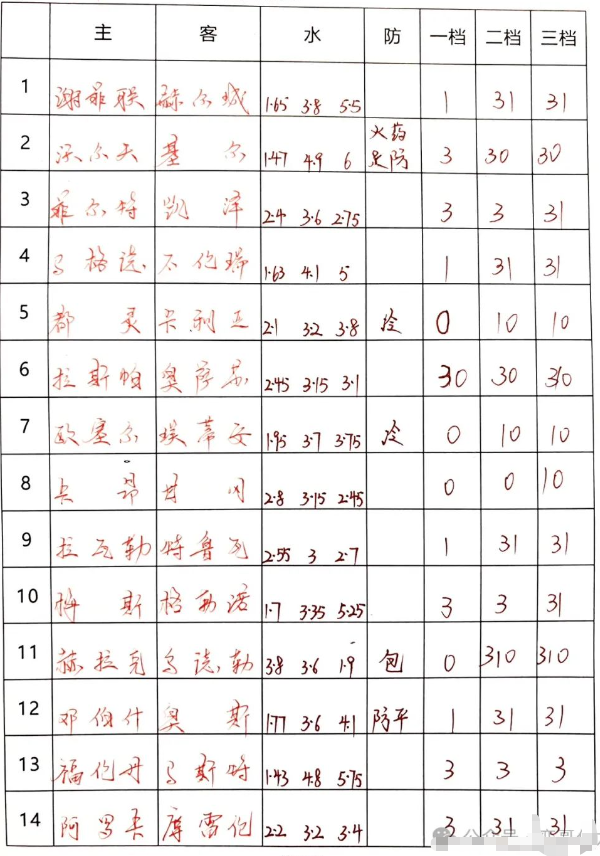 主 客 水 防 一档 二档 三档
1 谢菲联 赫尔城 1·65 3·8 5·5 1 31 31
2 沃尔夫 基尔 1·47 4·9 6 火药 足防 3 30 30
3 菲尔特 凯泽 2·4 3·6 2·75 3 3 31
4 马格德 不伦瑞 1·63 4·1 5 1 31 31
5 都灵 卡利亚 2·1 3·2 3·8 冷 0 10 10
6 拉斯帕 奥萨苏 2·45 3·15 3·1 30 30 310
7 欧塞尔 埃蒂安 1·95 3·7 3·75 冷 0 10 10
8 卡昂 2·8 3·15 2·45 0 0 10
9 拉瓦勒 特鲁瓦 2·55 3 2·7 1 31 31
10 梅斯 格勒诺 1·7 3·35 5·25 3 3 31
11 赫拉克 乌德勒 3·8 3·6 1·9 包 0 310 310
12 邓伯什 奥斯 1·77 3·6 4·1 防平 1 31 31
13 福伦丹 马斯特 1·43 4·8 5·75 3 3 3
14 阿罗卡 摩雷伦 2·2 3·2 3·4 3 31 31
公众号